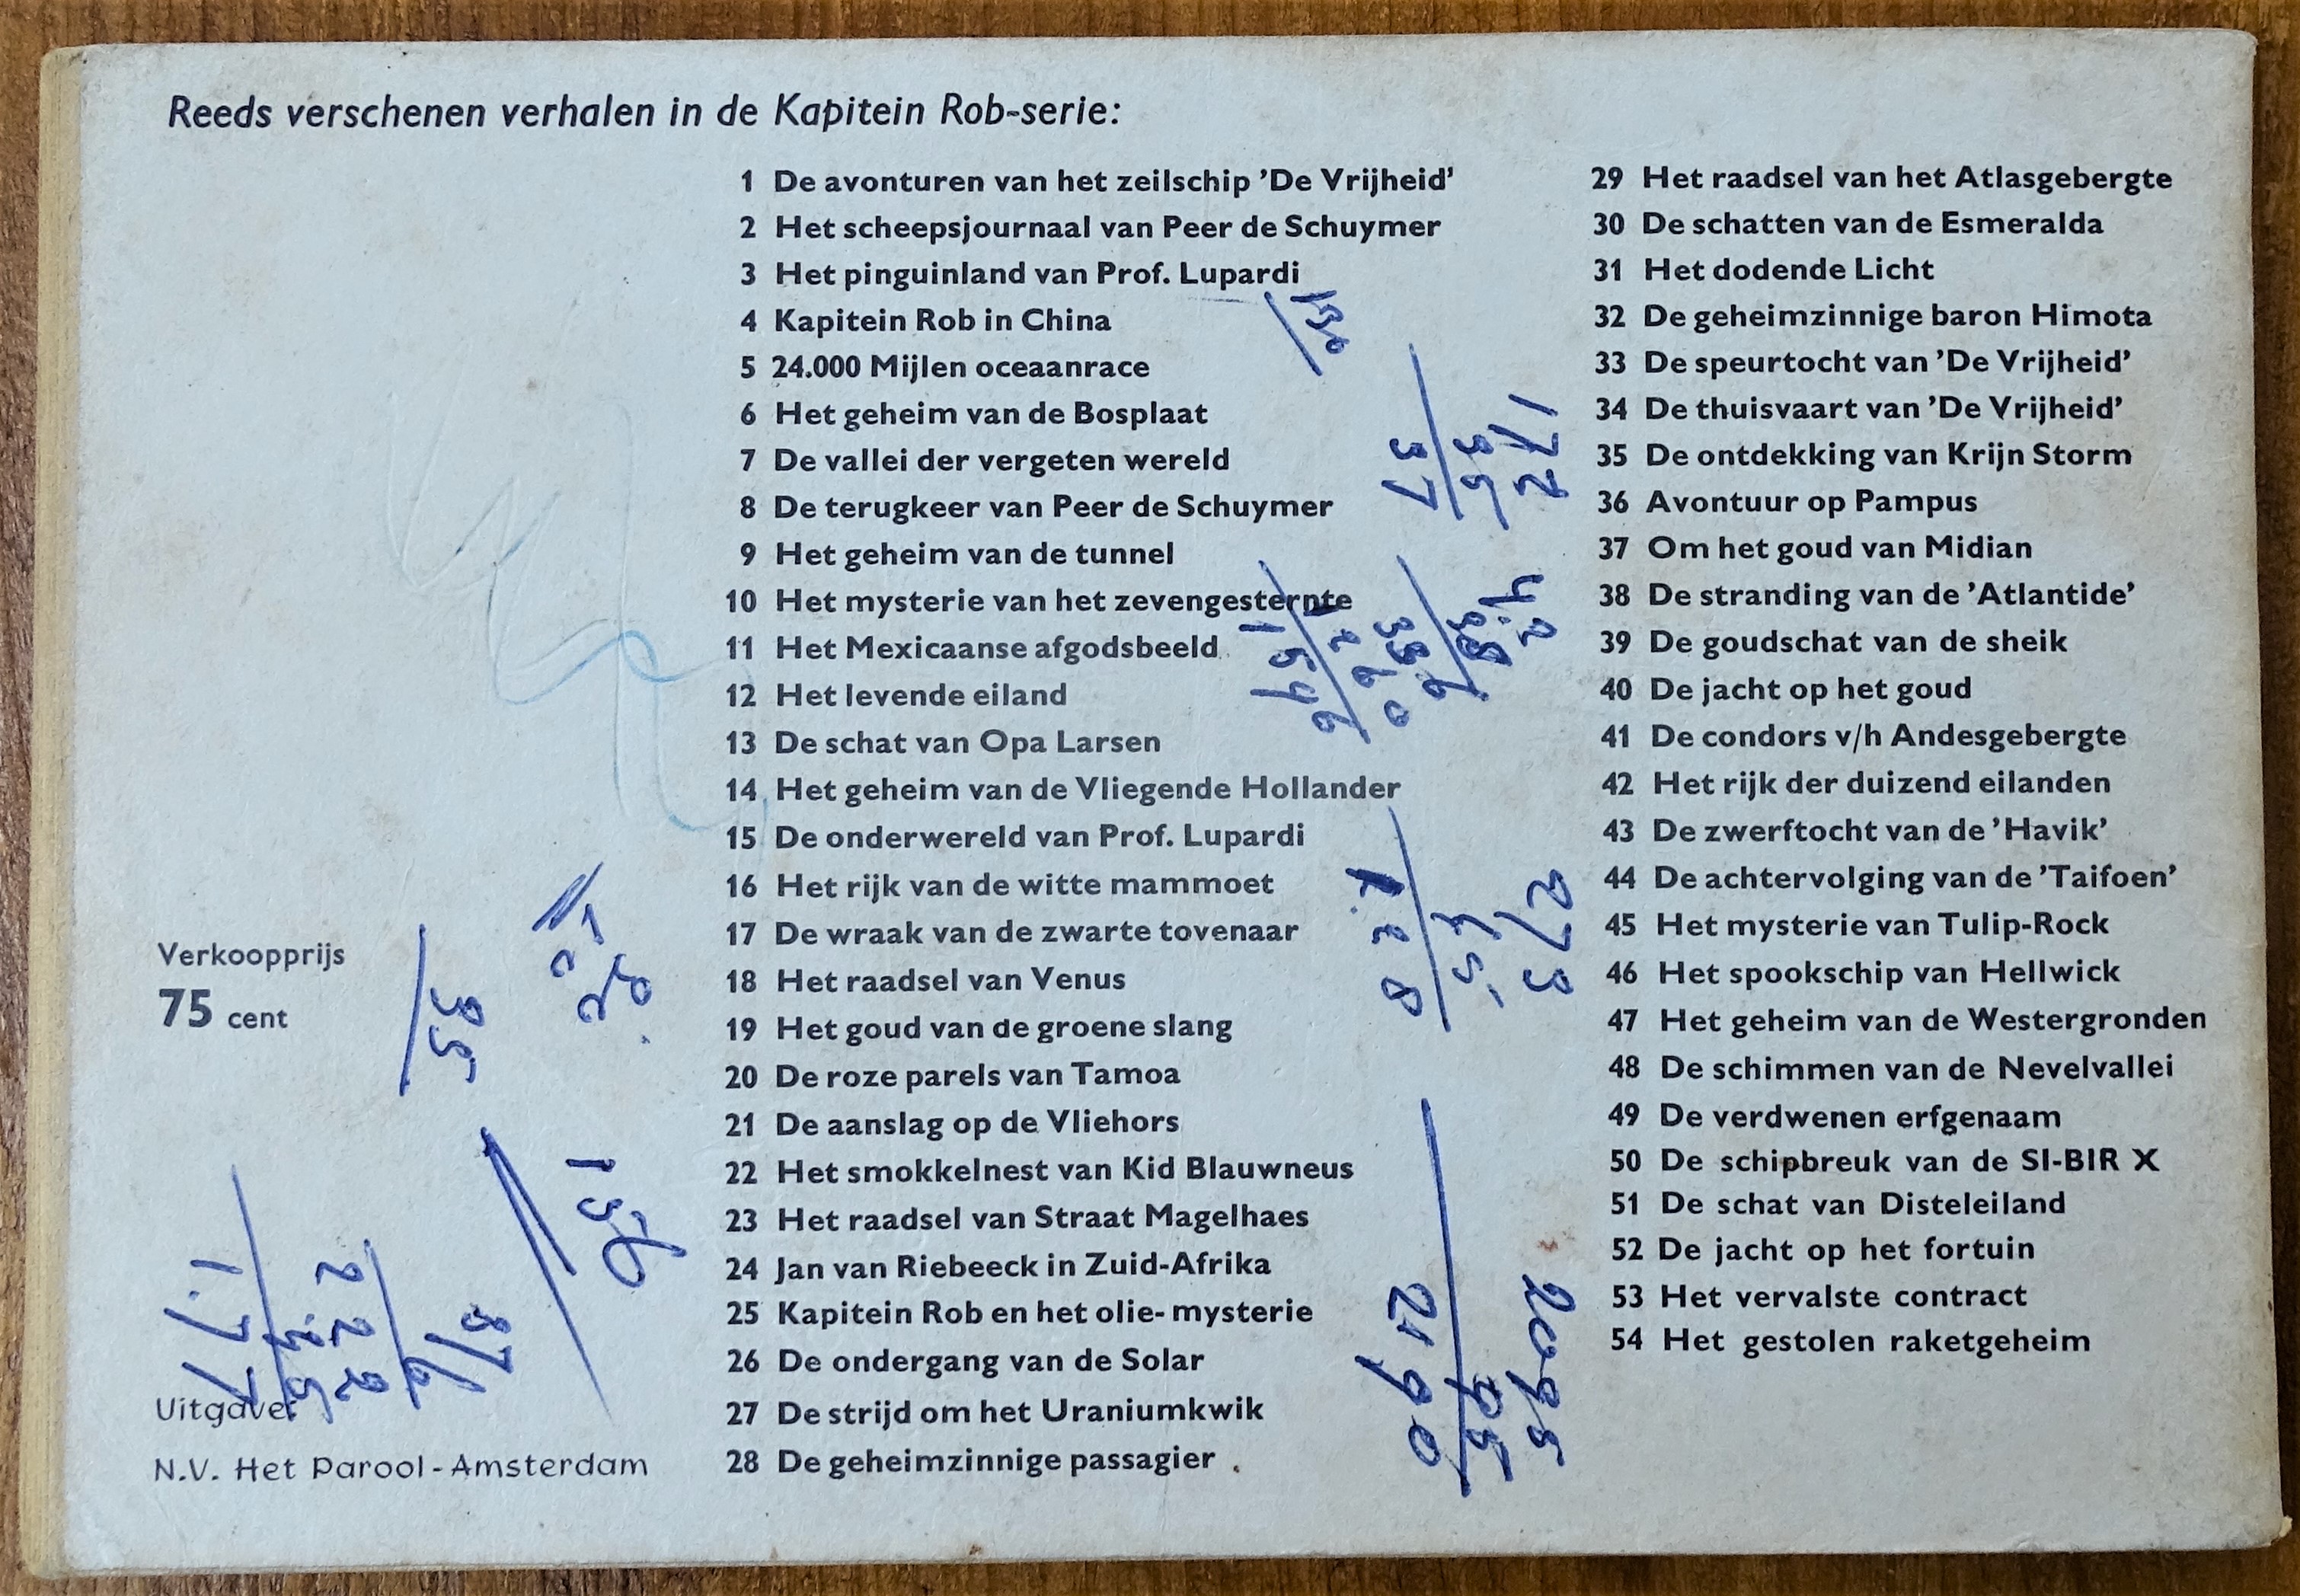 Reeds verschenen verhalen in de Kapitein Rob-serie:
1 De avonturen van het zeilschip ’De Vrijheid’
2 Het scheepsjournaal van Peer de Schuymer
3 Het pinguinland van Prof. Lupardi
4 Kapitein Rob in China
5 24.000 Mijlen oceaanrace
6 Het geheim van de Bosplaat
7 De vallei der vergeten wereld
8 De terugkeer van Peer de Schuymer
9 Het geheim van de tunnel
10 Het mysterie van het zevengesternte
11 Het Mexicaanse afgodsbeeld
12 Het levende eiland
13 De schat van Opa Larsen
14 Het geheim van de Vliegende Hollander
15 De onderwereld van Prof. Lupardi
16 Het rijk van de witte mammoet
17 De wraak van de zwarte tovenaar
18 Het raadsel van Venus
19 Het goud van de groene slang
20 De roze parels van Tamoa
21 De aanslag op de Vliehors
22 Het smokkelnest van Kid Blauwneus
23 Het raadsel van Straat Magelhaes
24 Jan van Riebeeck in Zuid-Afrika
25 Kapitein Rob en het olie-mysterie
26 De ondergang van de Solar
27 De strijd om het Uraniumkwik
28 De geheimzinnige passagier
29 Het raadsel van het Atlasgebergte
30 De schatten van de Esmeralda
31 Het dodende Licht
32 De geheimzinnige baron Himota
33 De speurtocht van ’De Vrijheid’
34 De thuisvaart van ’De Vrijheid’
35 De ontdekking van Krijn Storm
36 Avontuur op Pampus
37 Om het goud van Midian
38 De stranding van de ’Atlantide’
39 De goudschat van de sheik
40 De jacht op het goud
41 De condors v/h Andesgebergte
42 Het rijk der duizend eilanden
43 De zwerftocht van de ’Havik’
44 De achtervolging van de ’Taifoen’
45 Het mysterie van Tulip-Rock
46 Het spookschip van Hellwick
47 Het geheim van de Westergronden
48 De schimmen van de Nevelvallei
49 De verdwenen erfgenaam
50 De schipbreuk van de SI-BIR X
51 De schat van Disteleiland
52 De jacht op het fortuin
53 Het vervalste contract
54 Het gestolen raketgeheim
Verkoopprijs
75 cent
Uitgave:
N.V. Het Parool-Amsterdam
172
36
37
273
2095
95
2190
35
156